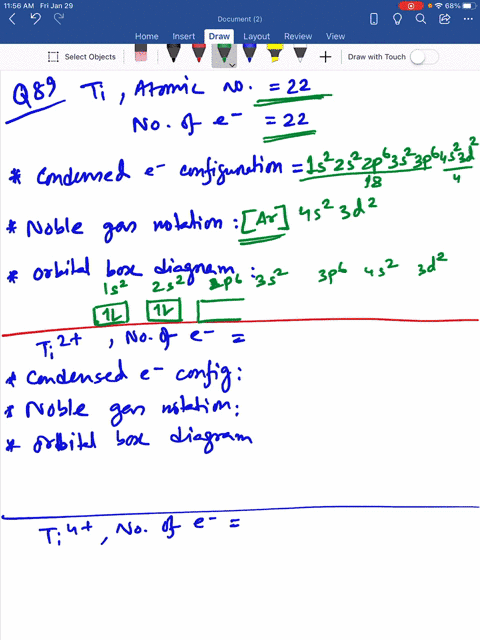 11:56 AM Fri Jan 29
68%
Document (2)
Home Insert Draw Layout Review View
Select Objects
Draw with Touch
Q89 Ti, Atomic no. = 22
No. of e⁻ = 22
* Condensed e⁻ configuration = 1s² 2s² 2p⁶ 3s² 3p⁶ 4s² 3d²
18 4
* Noble gas notation : [Ar] 4s² 3d²
* orbital box diagram :
1s² 2s² 2p⁶ 3s² 3p⁶ 4s² 3d²
1L 1L
Ti²⁺, No. of e⁻ =
* Condensed e⁻ config:
* Noble gas notation:
* orbital box diagram
Ti⁴⁺, No. of e⁻ =